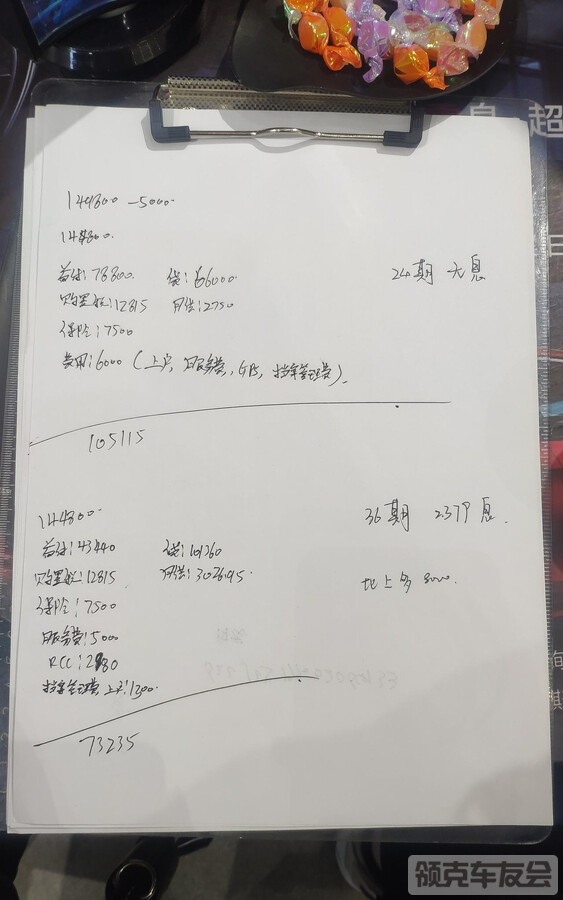 149800 -5000
144800
首付:78800 贷:66000 24期 无息
购置税:12815 月供:2750
保险:7500
费用:6000 (上户,服务费,GPS,档案管理费)
105115
144800 36期 息
首付:43440 贷:101360
购置税:12815 月供:3026.95 比上多 8000
保险:7500
服务费:5000
RCC:2980
档案管理费,上户:1500
73235
超
领克车友会